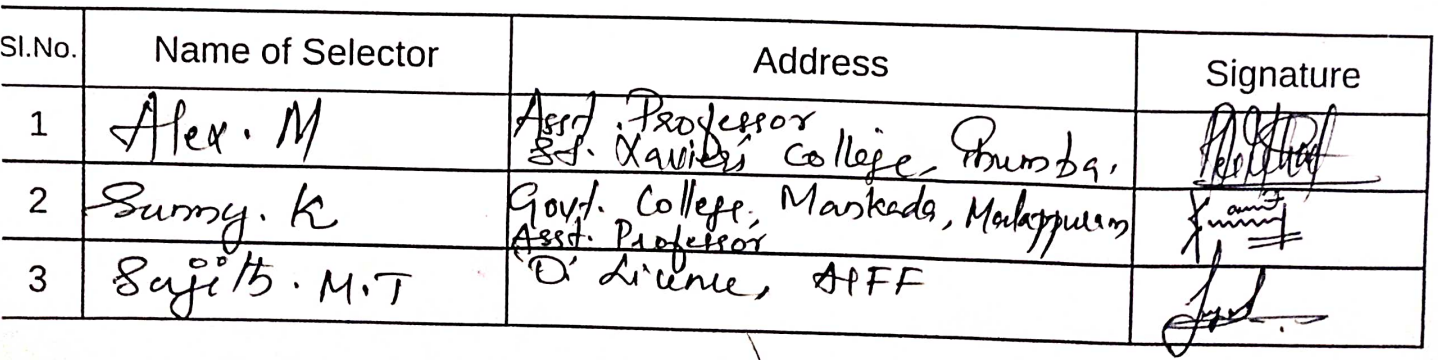 Sl.No. Name of Selector Address Signature
1 Alex. M Asst. Professor
St. Xavier's College, Thumba.
2 Sunny. K Govt. College, Mankada, Malappuram
Asst. Professor
3 Sajith. M.T 'D' Licence, AIFF